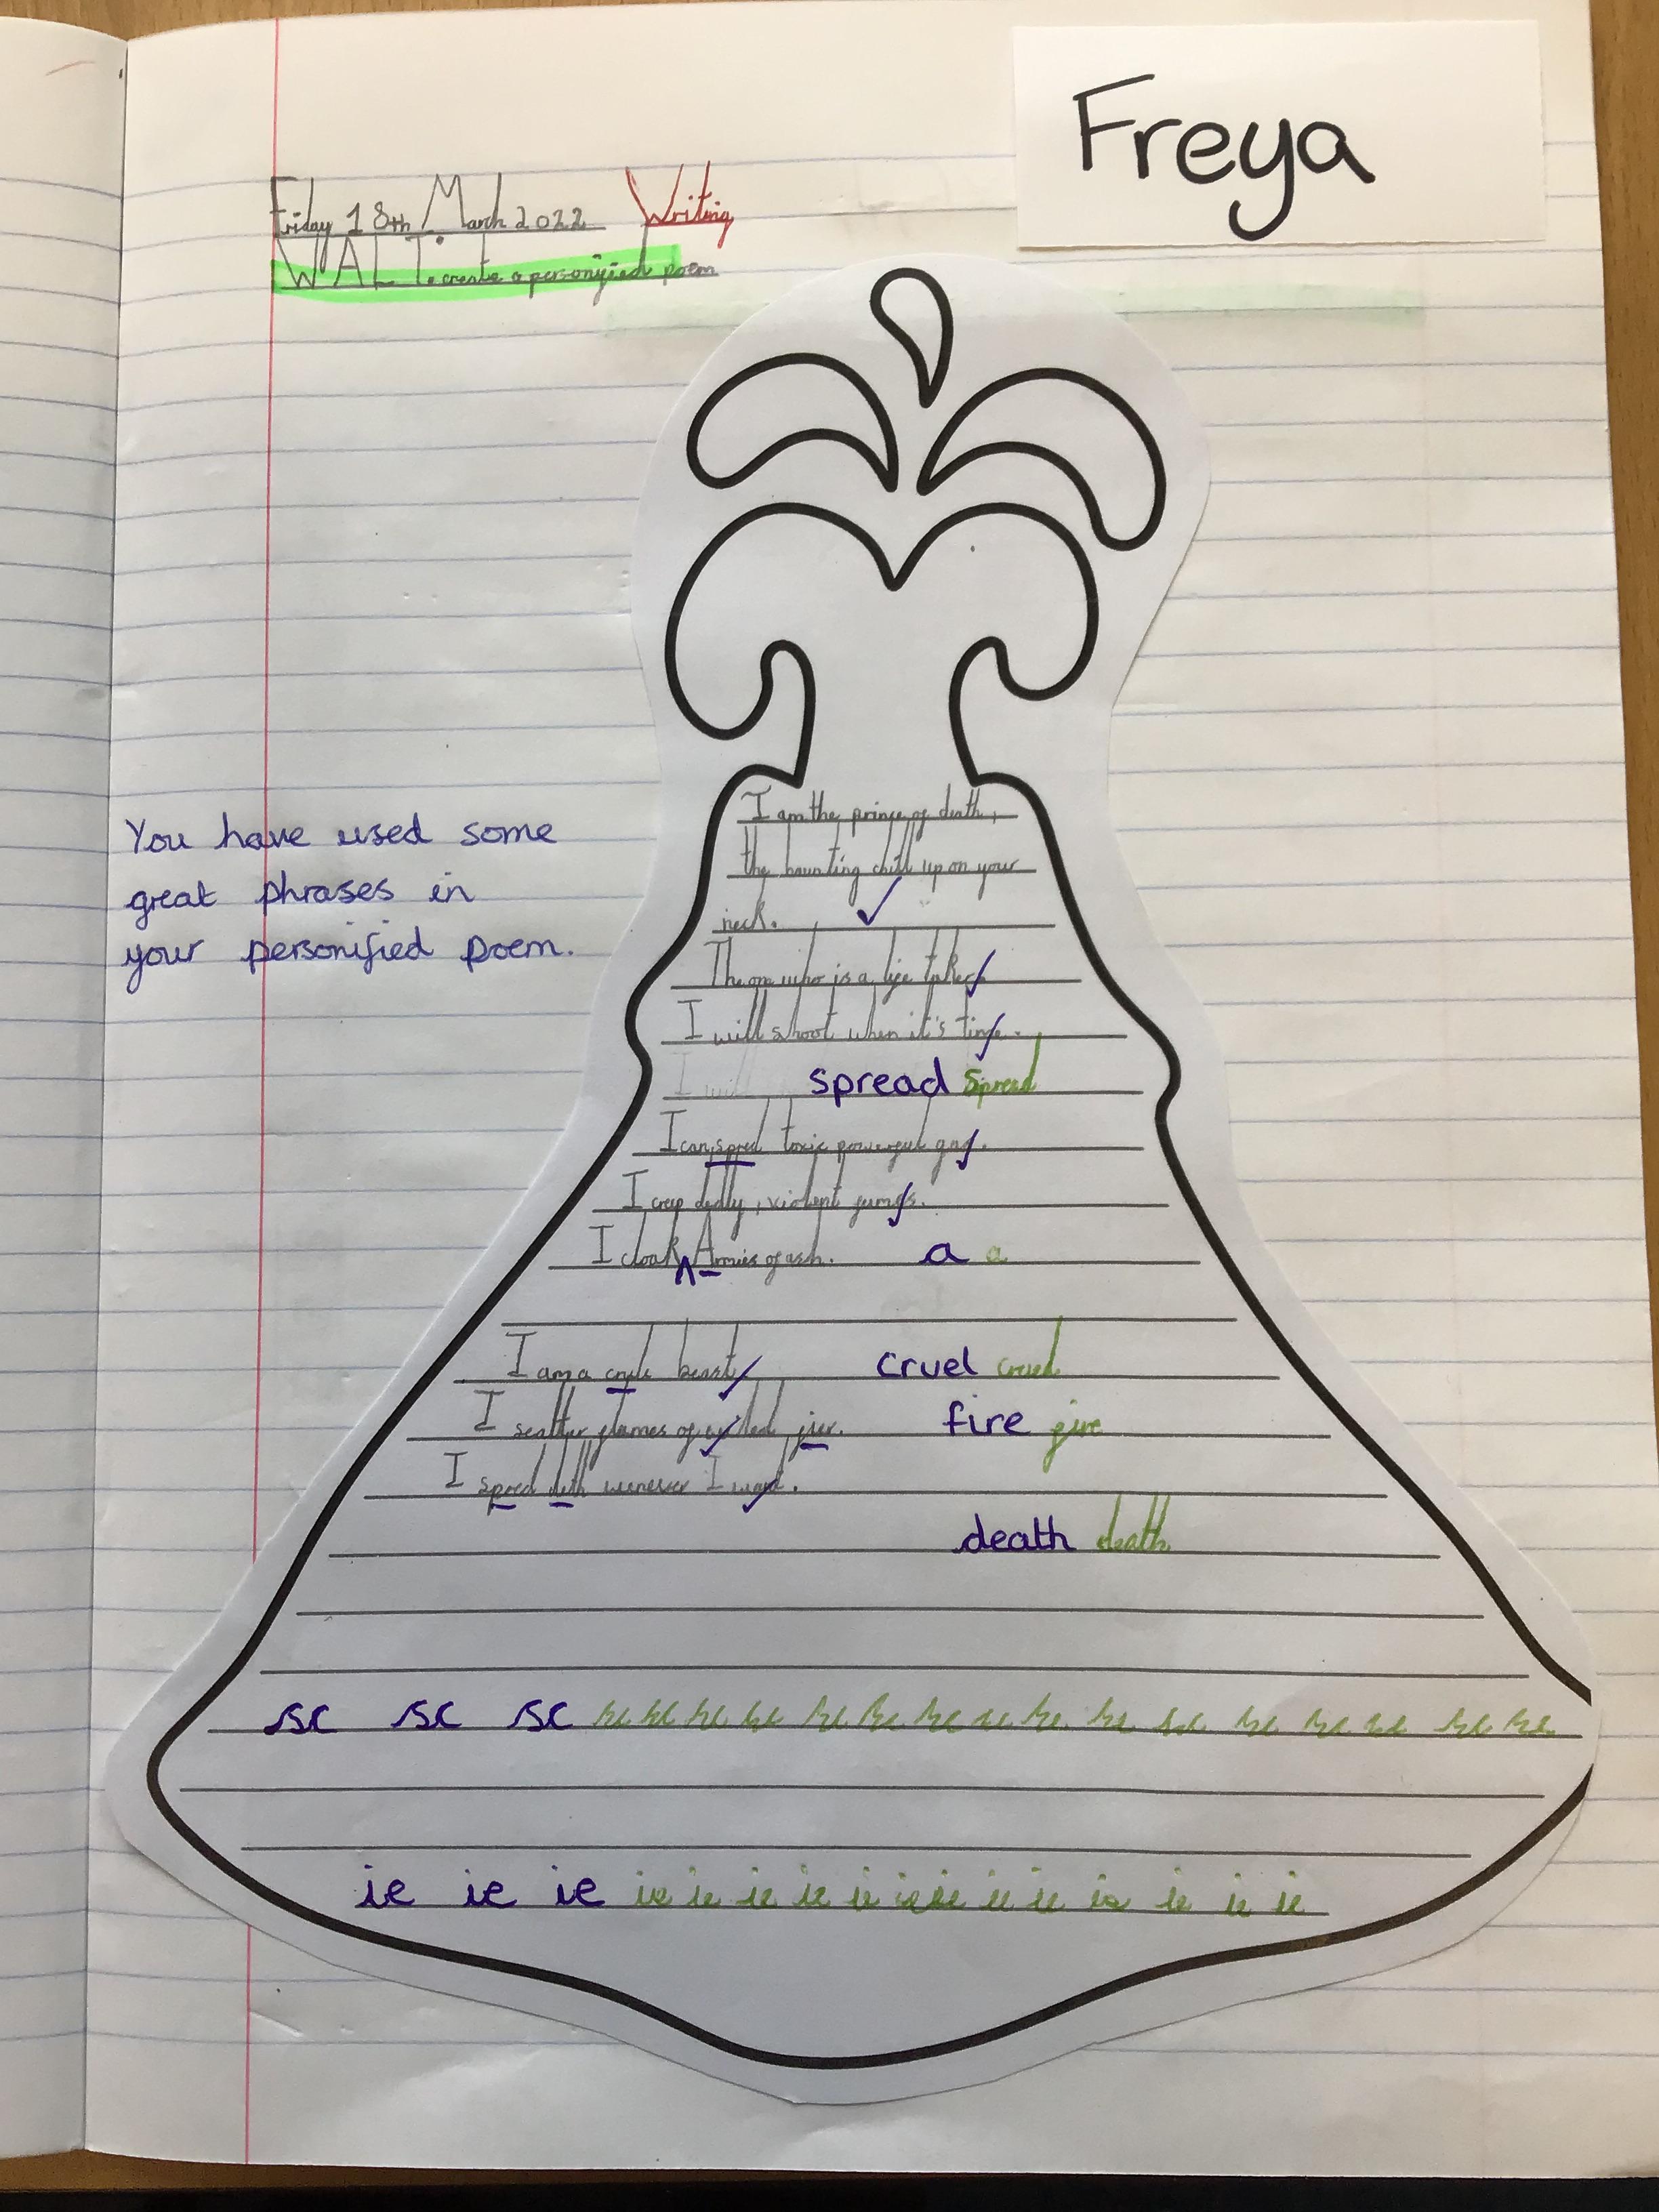 Freya
Friday 18th March 2022 Writing
WALT: create a personified poem
I am the prince of death,
the haunting chill up on your
neck.
The one who is a life taker
I will shoot when it's time.
I will spread Spread
I can spred toxic powerful gas.
I creep dedly, violent fumes.
I cloak Armies of ash. a a
I am a crule beast cruel cruel
I scatter flames of wicked fier. fire fire
I spred deth wenever I want.
death death
You have used some
great phrases in
your personified poem.
sc sc sc sc sc sc sc sc sc sc sc sc sc sc sc sc sc sc sc
ie ie ie ie ie ie ie ie ie ie ie ie ie ie ie ie